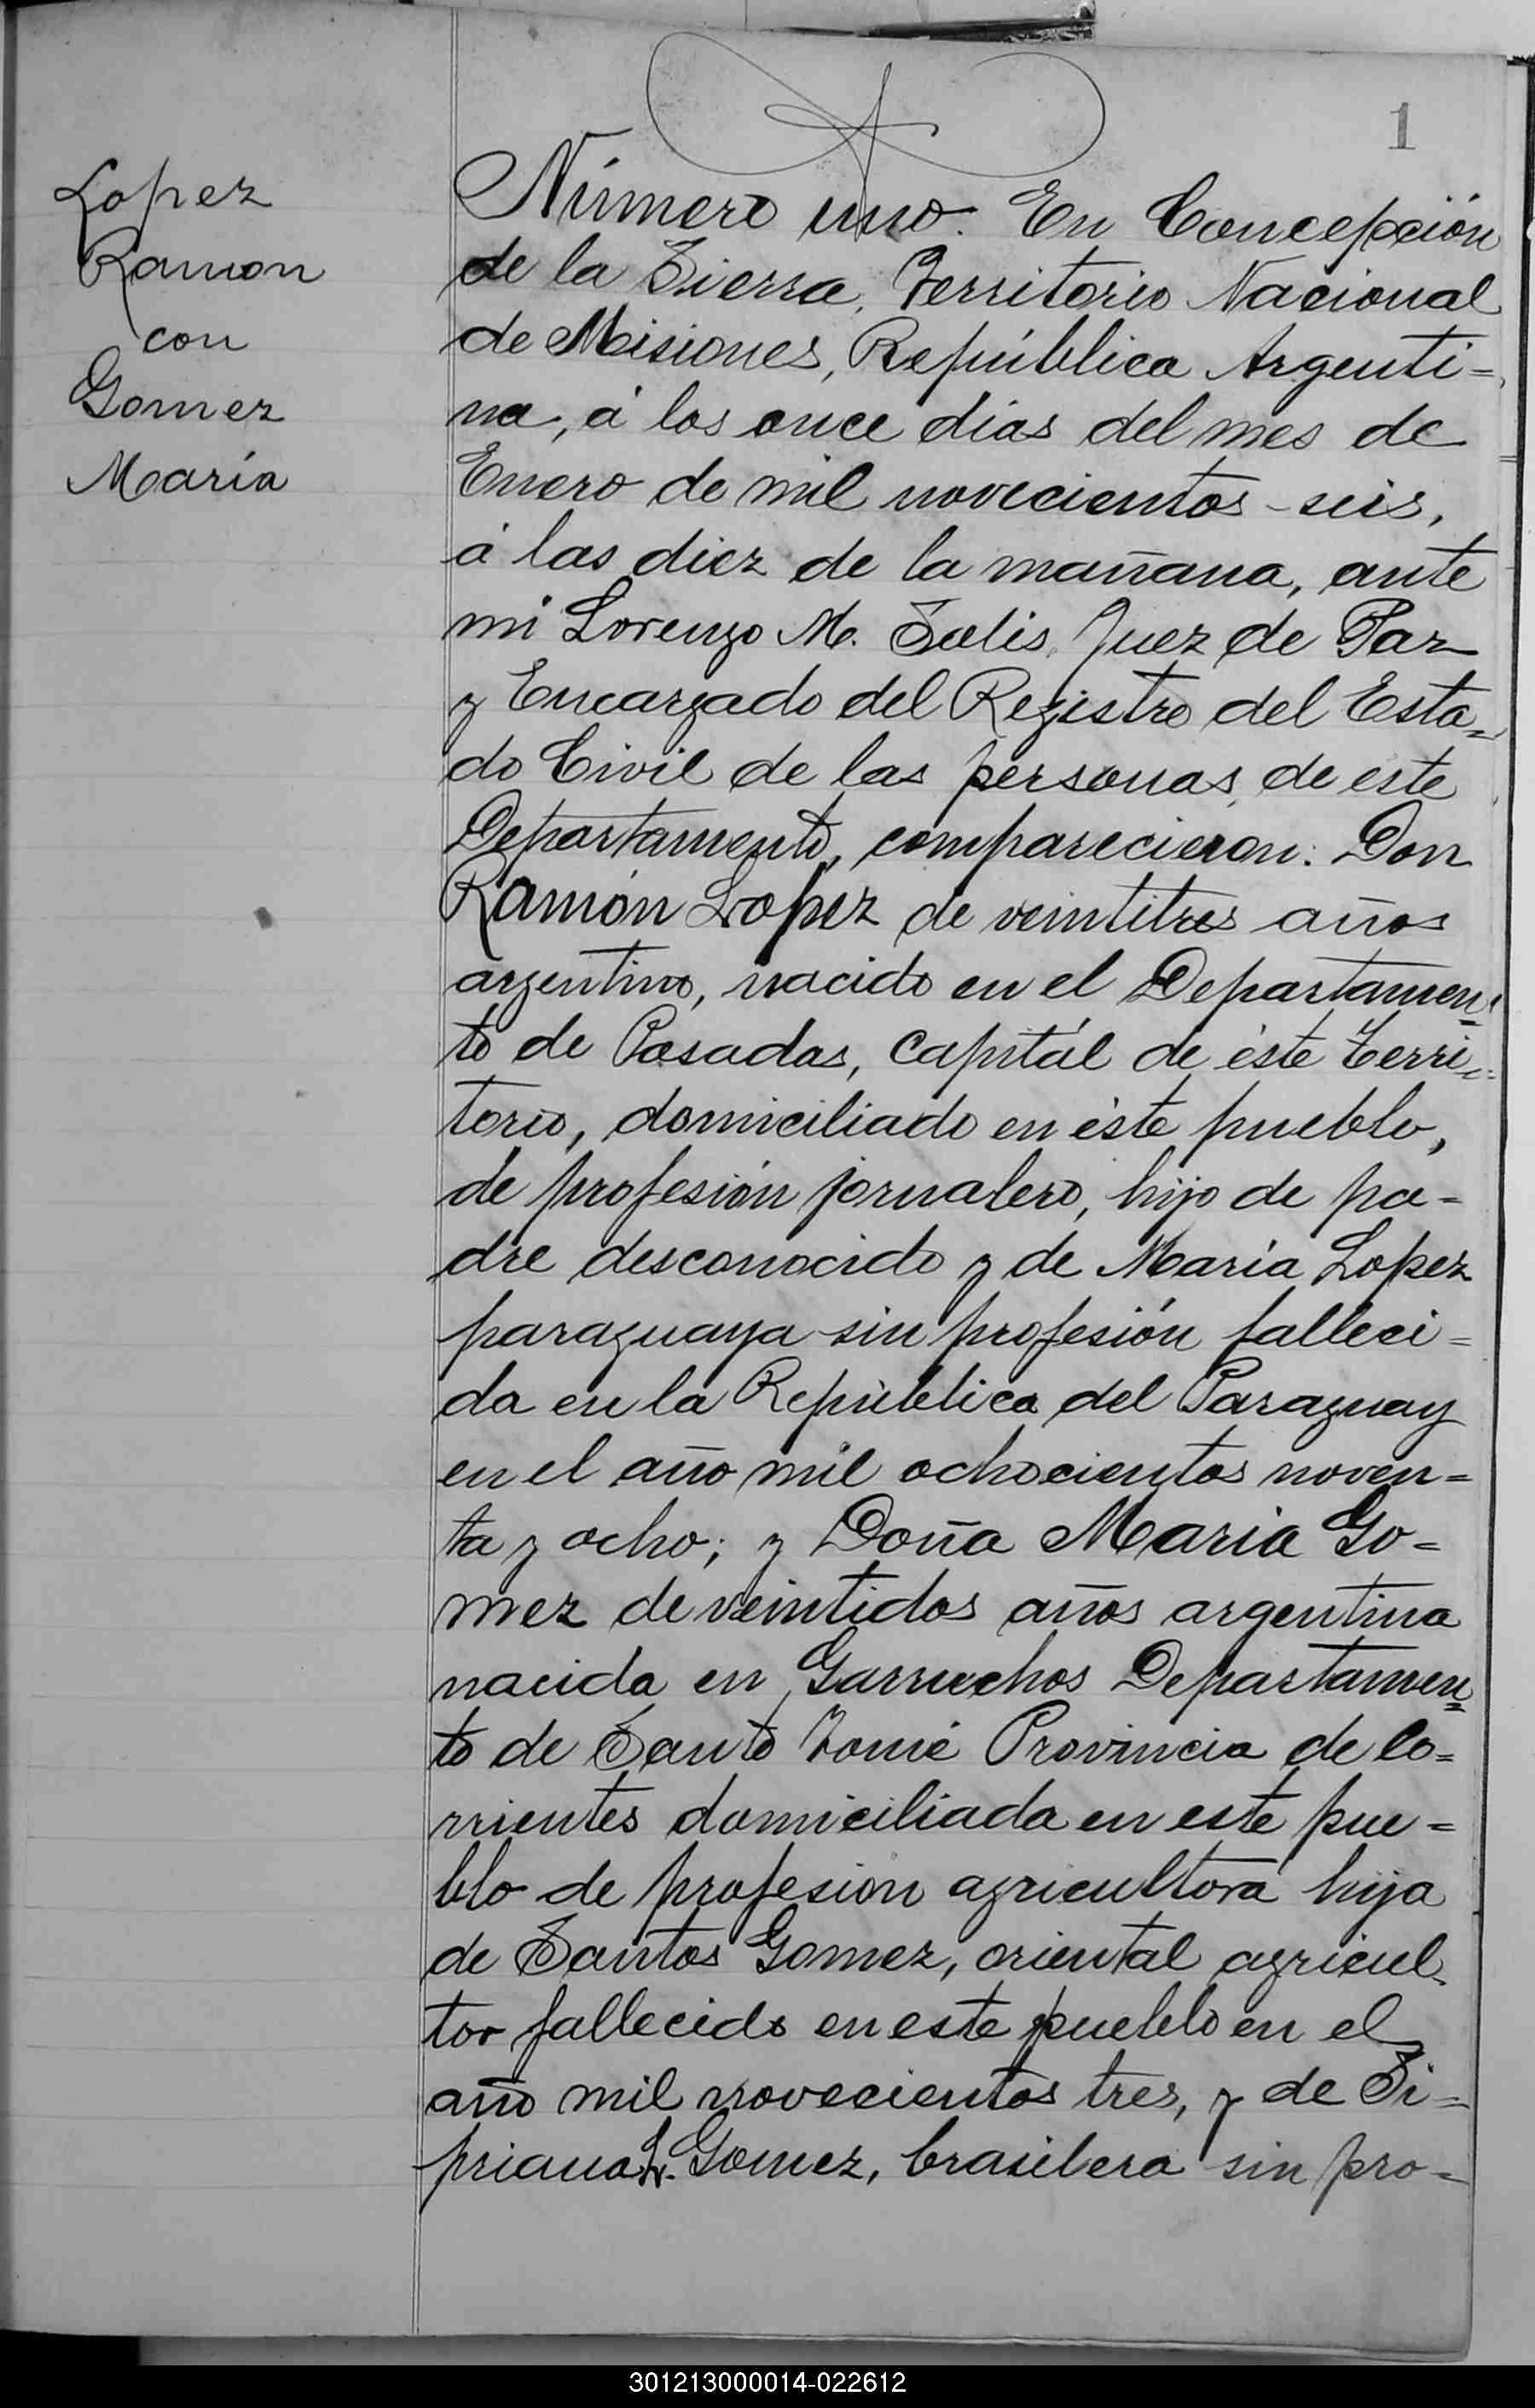 1
Lopez
Ramon
con
Gomez
María
Número uno. En Concepción
de la Sierra, Territorio Nacional
de Misiones, República Argenti=
na, á los once días del mes de
Enero de mil novecientos seis,
á las diez de la mañana, ante
mi Lorenzo M. Solis, Juez de Paz
y Encargado del Registro del Esta=
do Civil de las personas, de este
Departamento, comparecieron: Don
Ramón Lopez de veintitres años
argentino, nacido en el Departamen=
to de Posadas, Capitál de éste Terri=
torio, domiciliado en éste pueblo,
de profesión jornalero, hijo de pa=
dre desconocido y de María Lopez
paraguaya sin profesión falleci=
da en la República del Paraguay
en el año mil ochocientos noven=
ta y ocho; y Doña Maria Go=
mez de veintidos años argentina
nacida en Garruchos Departamen=
to de Santo Tomé Provincia de Co=
rrientes domiciliada en este pue=
blo de profesion agricultora hija
de Santos Gomez, oriental agricul=
tor fallecido en este pueblo en el
año mil novecientos tres, y de Si=
priana Gomez, brasilera sin pro=
301213000014-022612